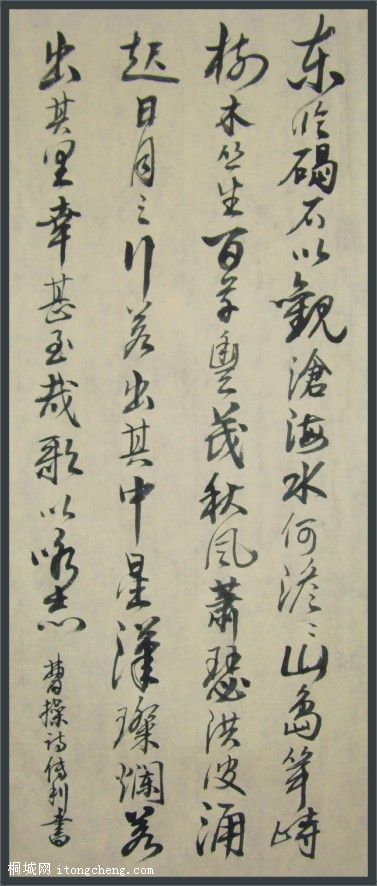 东临碣石以觀滄海水何澹〻山島竦峙
树木丛生百草豐茂秋风蕭瑟洪波涌
起日月之行若出其中星漢璨爛若
出其里幸甚至哉歌以咏志
曹操诗利書
桐城网 itongcheng.com